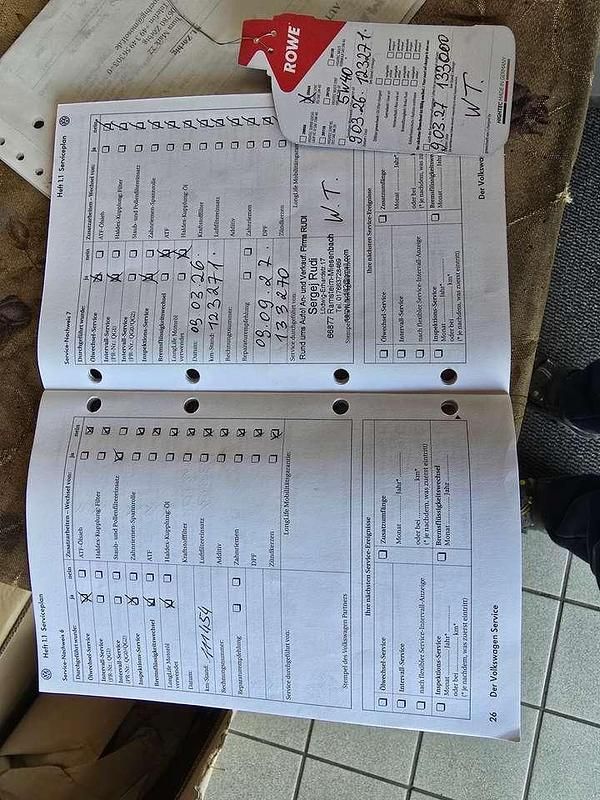 Heft 1.1 Serviceplan
Service-Nachweis 6
Durchgeführt wurde: ja nein
Ölwechsel-Service
Intervall-Service
(PR-Nr.: QG1)
Intervall-Service
(PR-Nr.: QG0/QG2)
Inspektions-Service
Bremsflüssigkeitswechsel
LongLife Motoröl
verwendet
Datum:
km-Stand: 111154
Rechnungsnummer:
Reparaturempfehlung:
Zusatzarbeiten - Wechsel von: ja nein
ATF-Ölsieb
Haldex-Kupplung: Filter
Staub- und Pollenfiltereinsatz
Zahnriemen-Spannrolle
ATF
Haldex-Kupplung: Öl
Kraftstofffilter
Luftfiltereinsatz
Additiv
Zahnriemen
DPF
Zündkerzen
Service durchgeführt von:
LongLife Mobilitätsgarantie:
Stempel des Volkswagen Partners
Ihre nächsten Service-Ereignisse
Ölwechsel-Service
Intervall-Service
nach flexibler Service-Intervall-Anzeige
Inspektions-Service
Monat Jahr*
oder bei km*
(* je nachdem, was zuerst eintritt)
Zusatzumfänge
Monat Jahr*
oder bei km*
(* je nachdem, was zuerst eintritt)
Bremsflüssigkeitswechsel
Monat Jahr
26 Der Volkswagen Service
Heft 1.1 Serviceplan
Service-Nachweis 7
Durchgeführt wurde: ja nein
Ölwechsel-Service
Intervall-Service
(PR-Nr.: QG1)
Intervall-Service
(PR-Nr.: QG0/QG2)
Inspektions-Service
Bremsflüssigkeitswechsel
LongLife Motoröl
verwendet
Datum: 09.03.26.
km-Stand: 123271.
Rechnungsnummer:
Reparaturempfehlung:
09.09.27.
133270
Zusatzarbeiten - Wechsel von: ja nein
ATF-Ölsieb
Haldex-Kupplung: Filter
Staub- und Pollenfiltereinsatz
Zahnriemen-Spannrolle
ATF
Haldex-Kupplung: Öl
Kraftstofffilter
Luftfiltereinsatz
Additiv
Zahnriemen
DPF
Zündkerzen
Service durchgeführt von:
Rund ums Auto/ An- und Verkauf, Firma RUDI
Sergej Rudi
66877 Ramstein-Miesenbach
W.T.
LongLife Mobilitätsgarantie
Ihre nächsten Service-Ereignisse
Ölwechsel-Service
Intervall-Service
nach flexibler Service-Intervall-Anzeige
Inspektions-Service
Monat Jahr*
oder bei km*
(* je nachdem, was zuerst eintritt)
Zusatzumfänge
Monat Jahr*
oder bei
(* je nachdem, was
Bremsflüssigkeits
Monat
Der Volkswa
ROWE
5W40
9.03.26 123271.
9.03.27 133000
W.T.
HIGHTEC MADE IN GERMANY